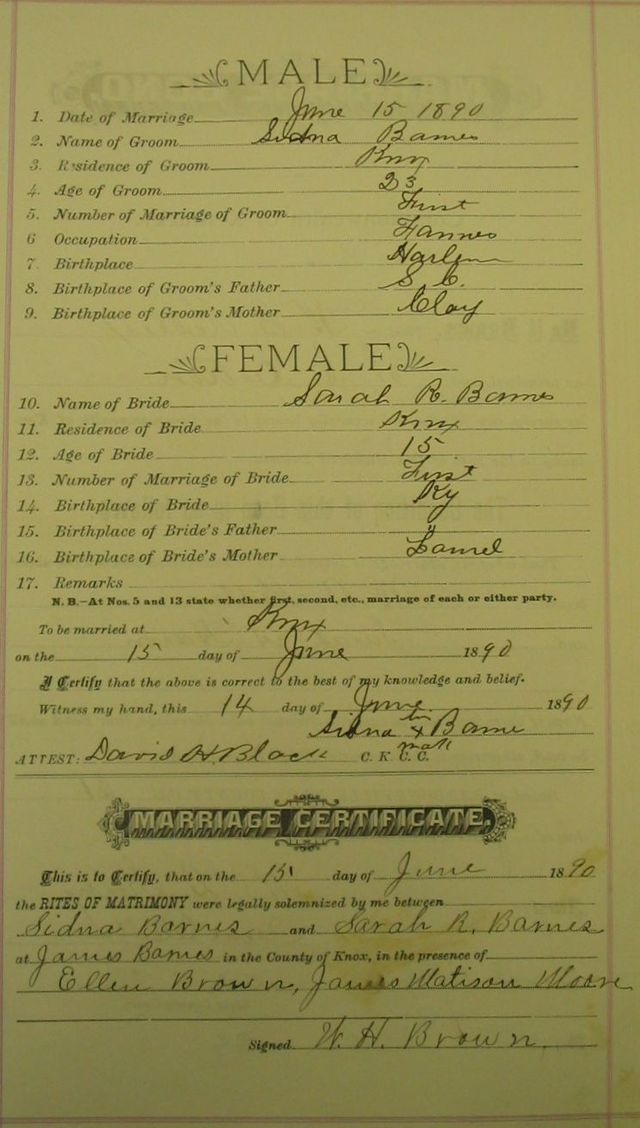 MALE
1. Date of Marriage June 15 1890
2. Name of Groom Sidna Barnes
3. Residence of Groom Knox
4. Age of Groom 23
5. Number of Marriage of Groom First
6 Occupation Farmer
7. Birthplace Harlan
8. Birthplace of Groom's Father S. C.
9. Birthplace of Groom's Mother Clay
FEMALE
10. Name of Bride Sarah R. Barnes
11. Residence of Bride Knox
12. Age of Bride 15
13. Number of Marriage of Bride First
14. Birthplace of Bride Ky
15. Birthplace of Bride's Father "
16. Birthplace of Bride's Mother Laurel
17. Remarks
N. B.—At Nos. 5 and 13 state whether first, second, etc., marriage of each or either party.
To be married at Knox
on the 15 day of June 1890
I Certify that the above is correct to the best of my knowledge and belief.
Witness my hand, this 14 day of June 1890
Sidna x Barne
mark
ATTEST: David H. Black C. K. C. C.
MARRIAGE CERTIFICATE.
This is to Certify, that on the 15 day of June 1890
the RITES OF MATRIMONY were legally solemnized by me between
Sidna Barnes and Sarah R. Barnes
at James Barnes in the County of Knox, in the presence of
Ellen Brown, James Matison Moore
Signed W. H. Brown